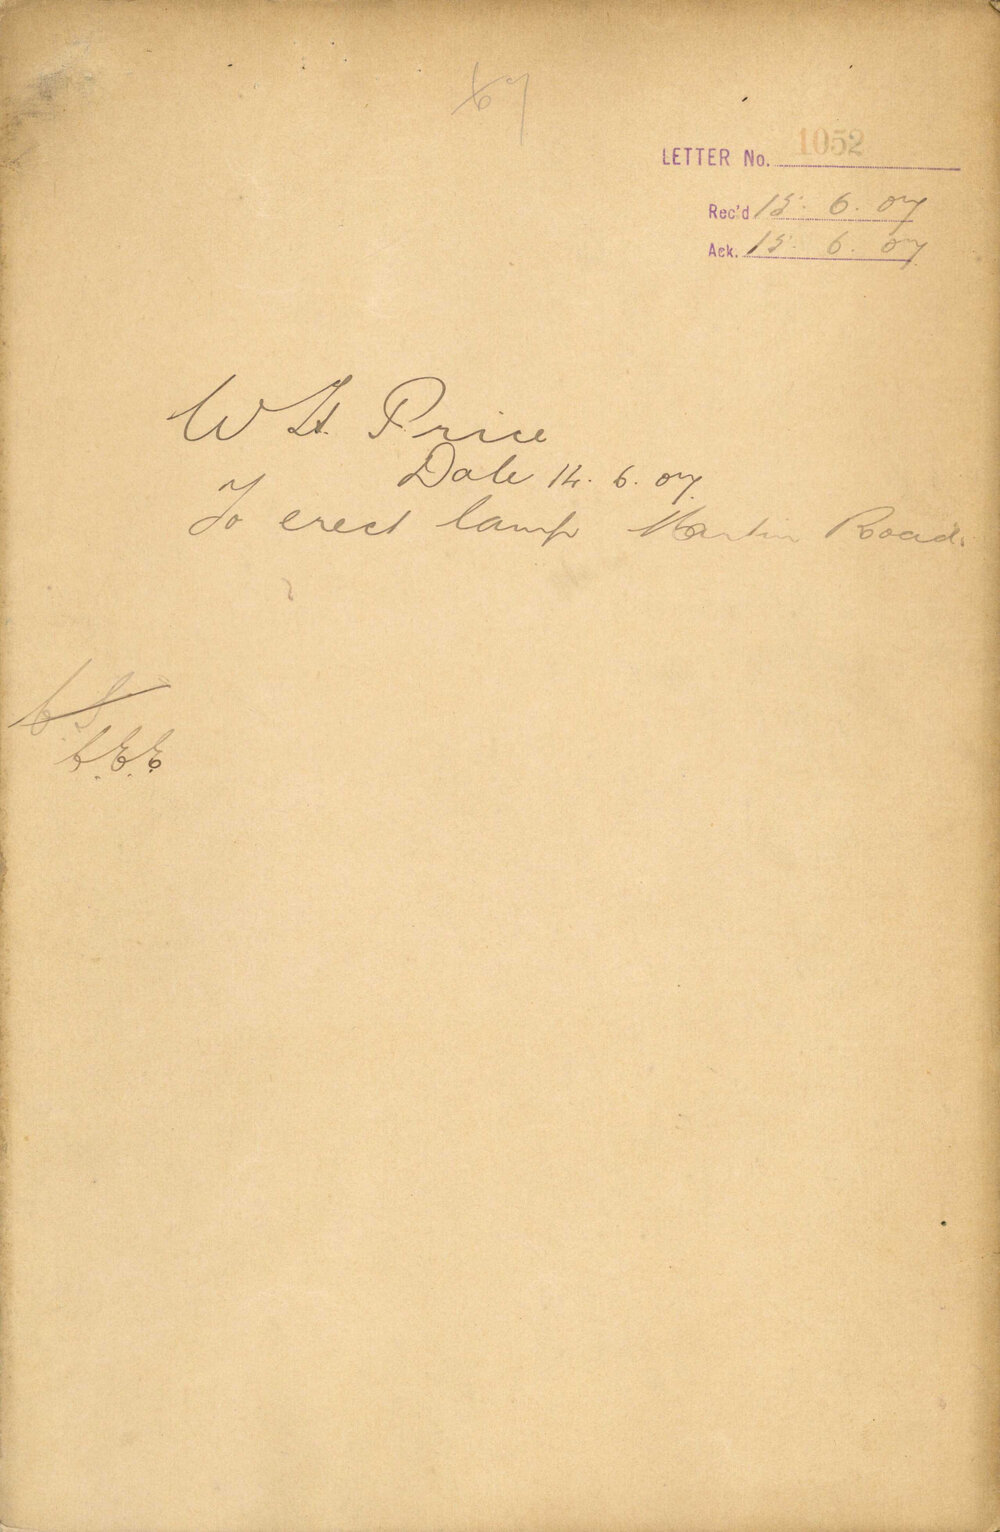 67
LETTER No. 1052
Rec'd 15. 6. 07
Ack. 15. 6. 07
W H Price
Date 14. 6. 07.
To erect lamp Martin Road.
C.S
C.E.E